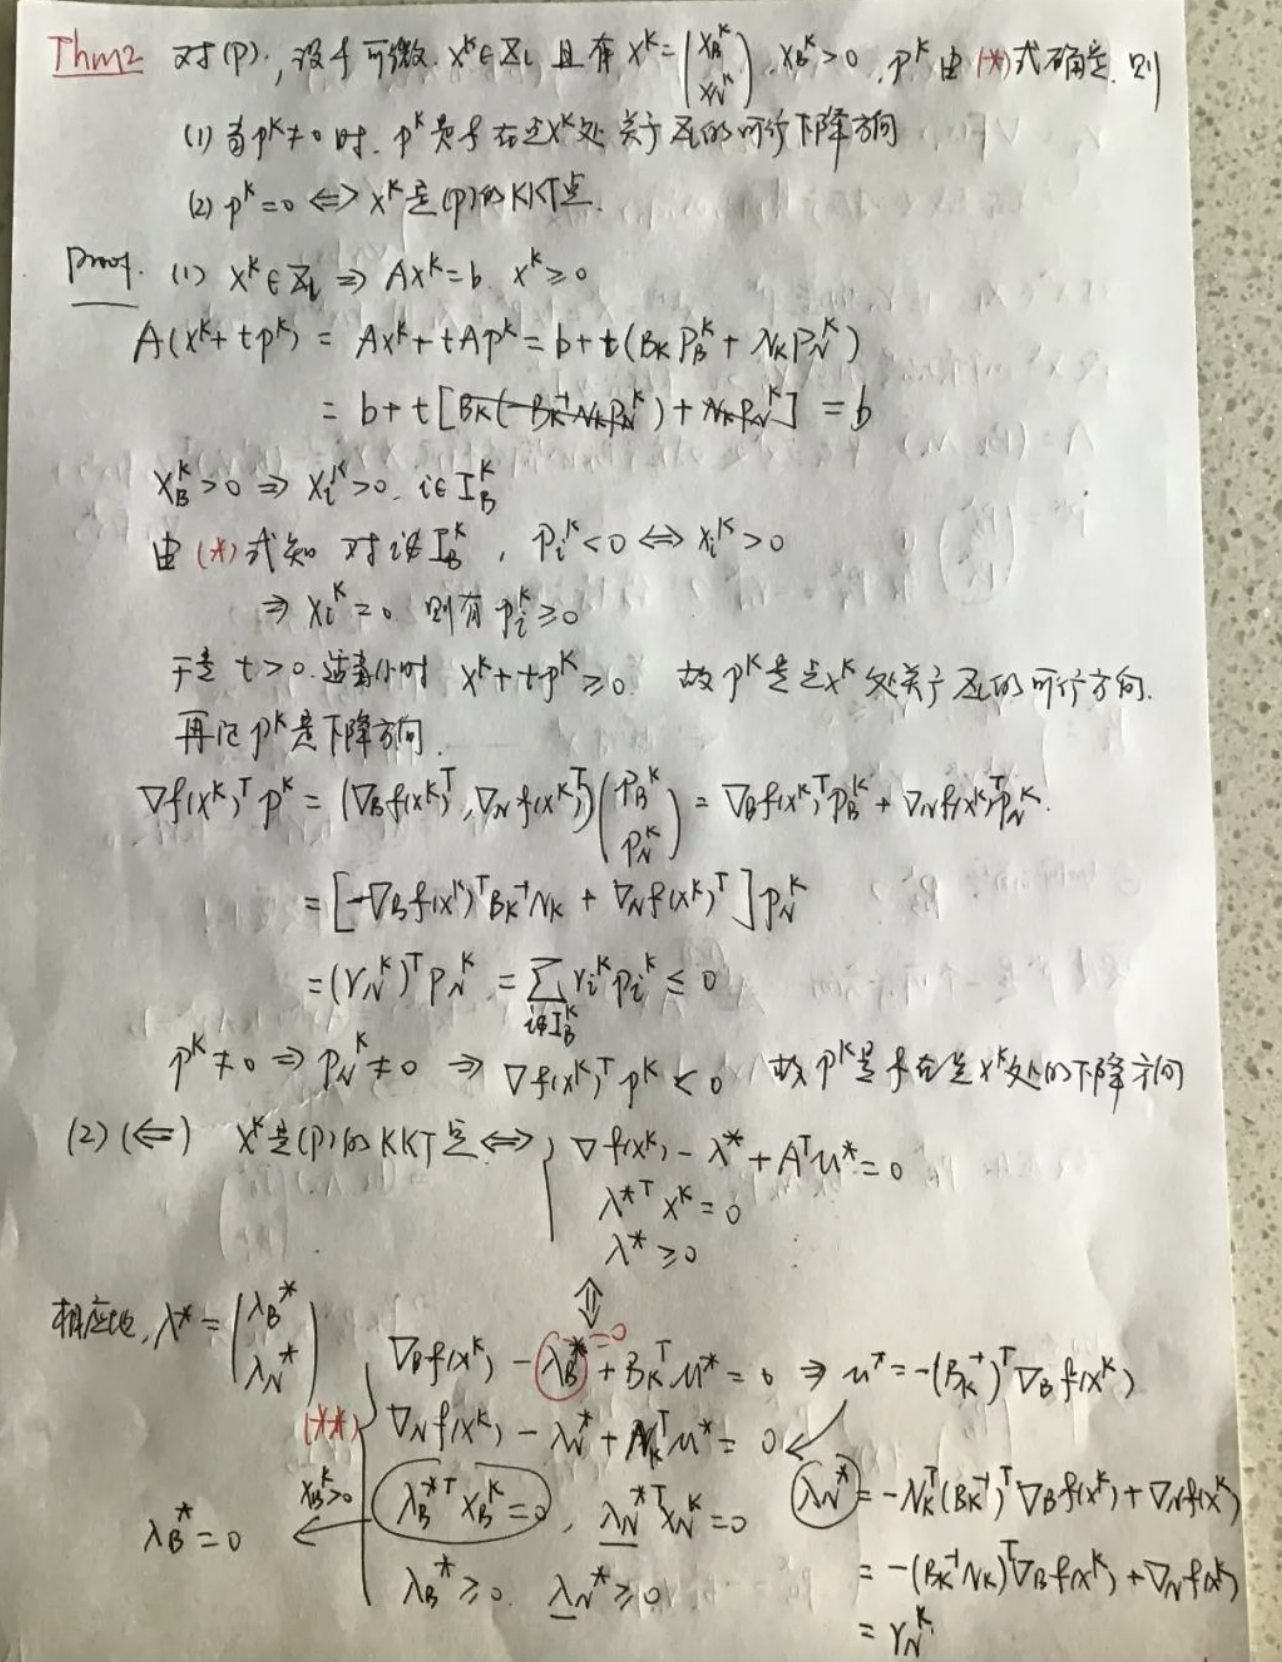 Thm2 对(P), 设f可微. x^K∈X_l 且有 x^K=(x_B^K x_N^K), x_B^K>0, p^K由(*)式确定, 则
(1) 当p^K≠0时, p^K是f在点x^K处关于X_l的可行下降方向
(2) p^K=0 ⟺ x^K是(P)的KKT点.
Proof. (1) x^K∈X_l ⇒ Ax^K=b, x^K≥0
A(x^K+tp^K) = Ax^K+tAp^K = b+t(B_K p_B^K + N_K p_N^K)
= b+t[B_K(-B_K^{-1}N_K p_N^K)+N_K p_N^K] = b
x_B^K>0 ⇒ x_i^K>0, i∈I_B^K
由(*)式知 对i∉I_B^K, p_i^K<0 ⟺ x_i^K>0
⇒ x_i^K=0 则有 p_i^K≥0
于是 t>0 适当小时 x^K+tp^K≥0 故p^K是点x^K处关于X_l的可行方向.
再证p^K是下降方向.
∇f(x^K)^T p^K = (∇_B f(x^K)^T, ∇_N f(x^K)^T)(p_B^K p_N^K) = ∇_B f(x^K)^T p_B^K + ∇_N f(x^K)^T p_N^K.
= [-∇_B f(x^K)^T B_K^{-1} N_K + ∇_N f(x^K)^T] p_N^K
= (r_N^K)^T p_N^K = ∑_{i∉I_B^K} r_i^K p_i^K ≤ 0
p^K≠0 ⇒ p_N^K≠0 ⇒ ∇f(x^K)^T p^K<0 故p^K是f在点x^K处的下降方向
(2) (⇐) x^K是(P)的KKT点 ⟺ { ∇f(x^K) - λ* + A^T u* = 0
λ*^T x^K = 0
λ* ≥ 0
⇕
相应地, λ* = (λ_B* λ_N*)
∇_B f(x^K) - λ_B* + B_K^T u* = 0 ⇒ u* = -(B_K^{-1})^T ∇_B f(x^K)
=0
(**) { ∇_N f(x^K) - λ_N* + N_K^T u* = 0
λ_B* = 0 ← x_B^K>0 λ_B*^T x_B^K = 0, λ_N*^T x_N^K = 0
λ_B* ≥ 0, λ_N* ≥ 0
λ_N* = -N_K^T (B_K^{-1})^T ∇_B f(x^K) + ∇_N f(x^K)
= -(B_K^{-1} N_K)^T ∇_B f(x^K) + ∇_N f(x^K)
= r_N^K